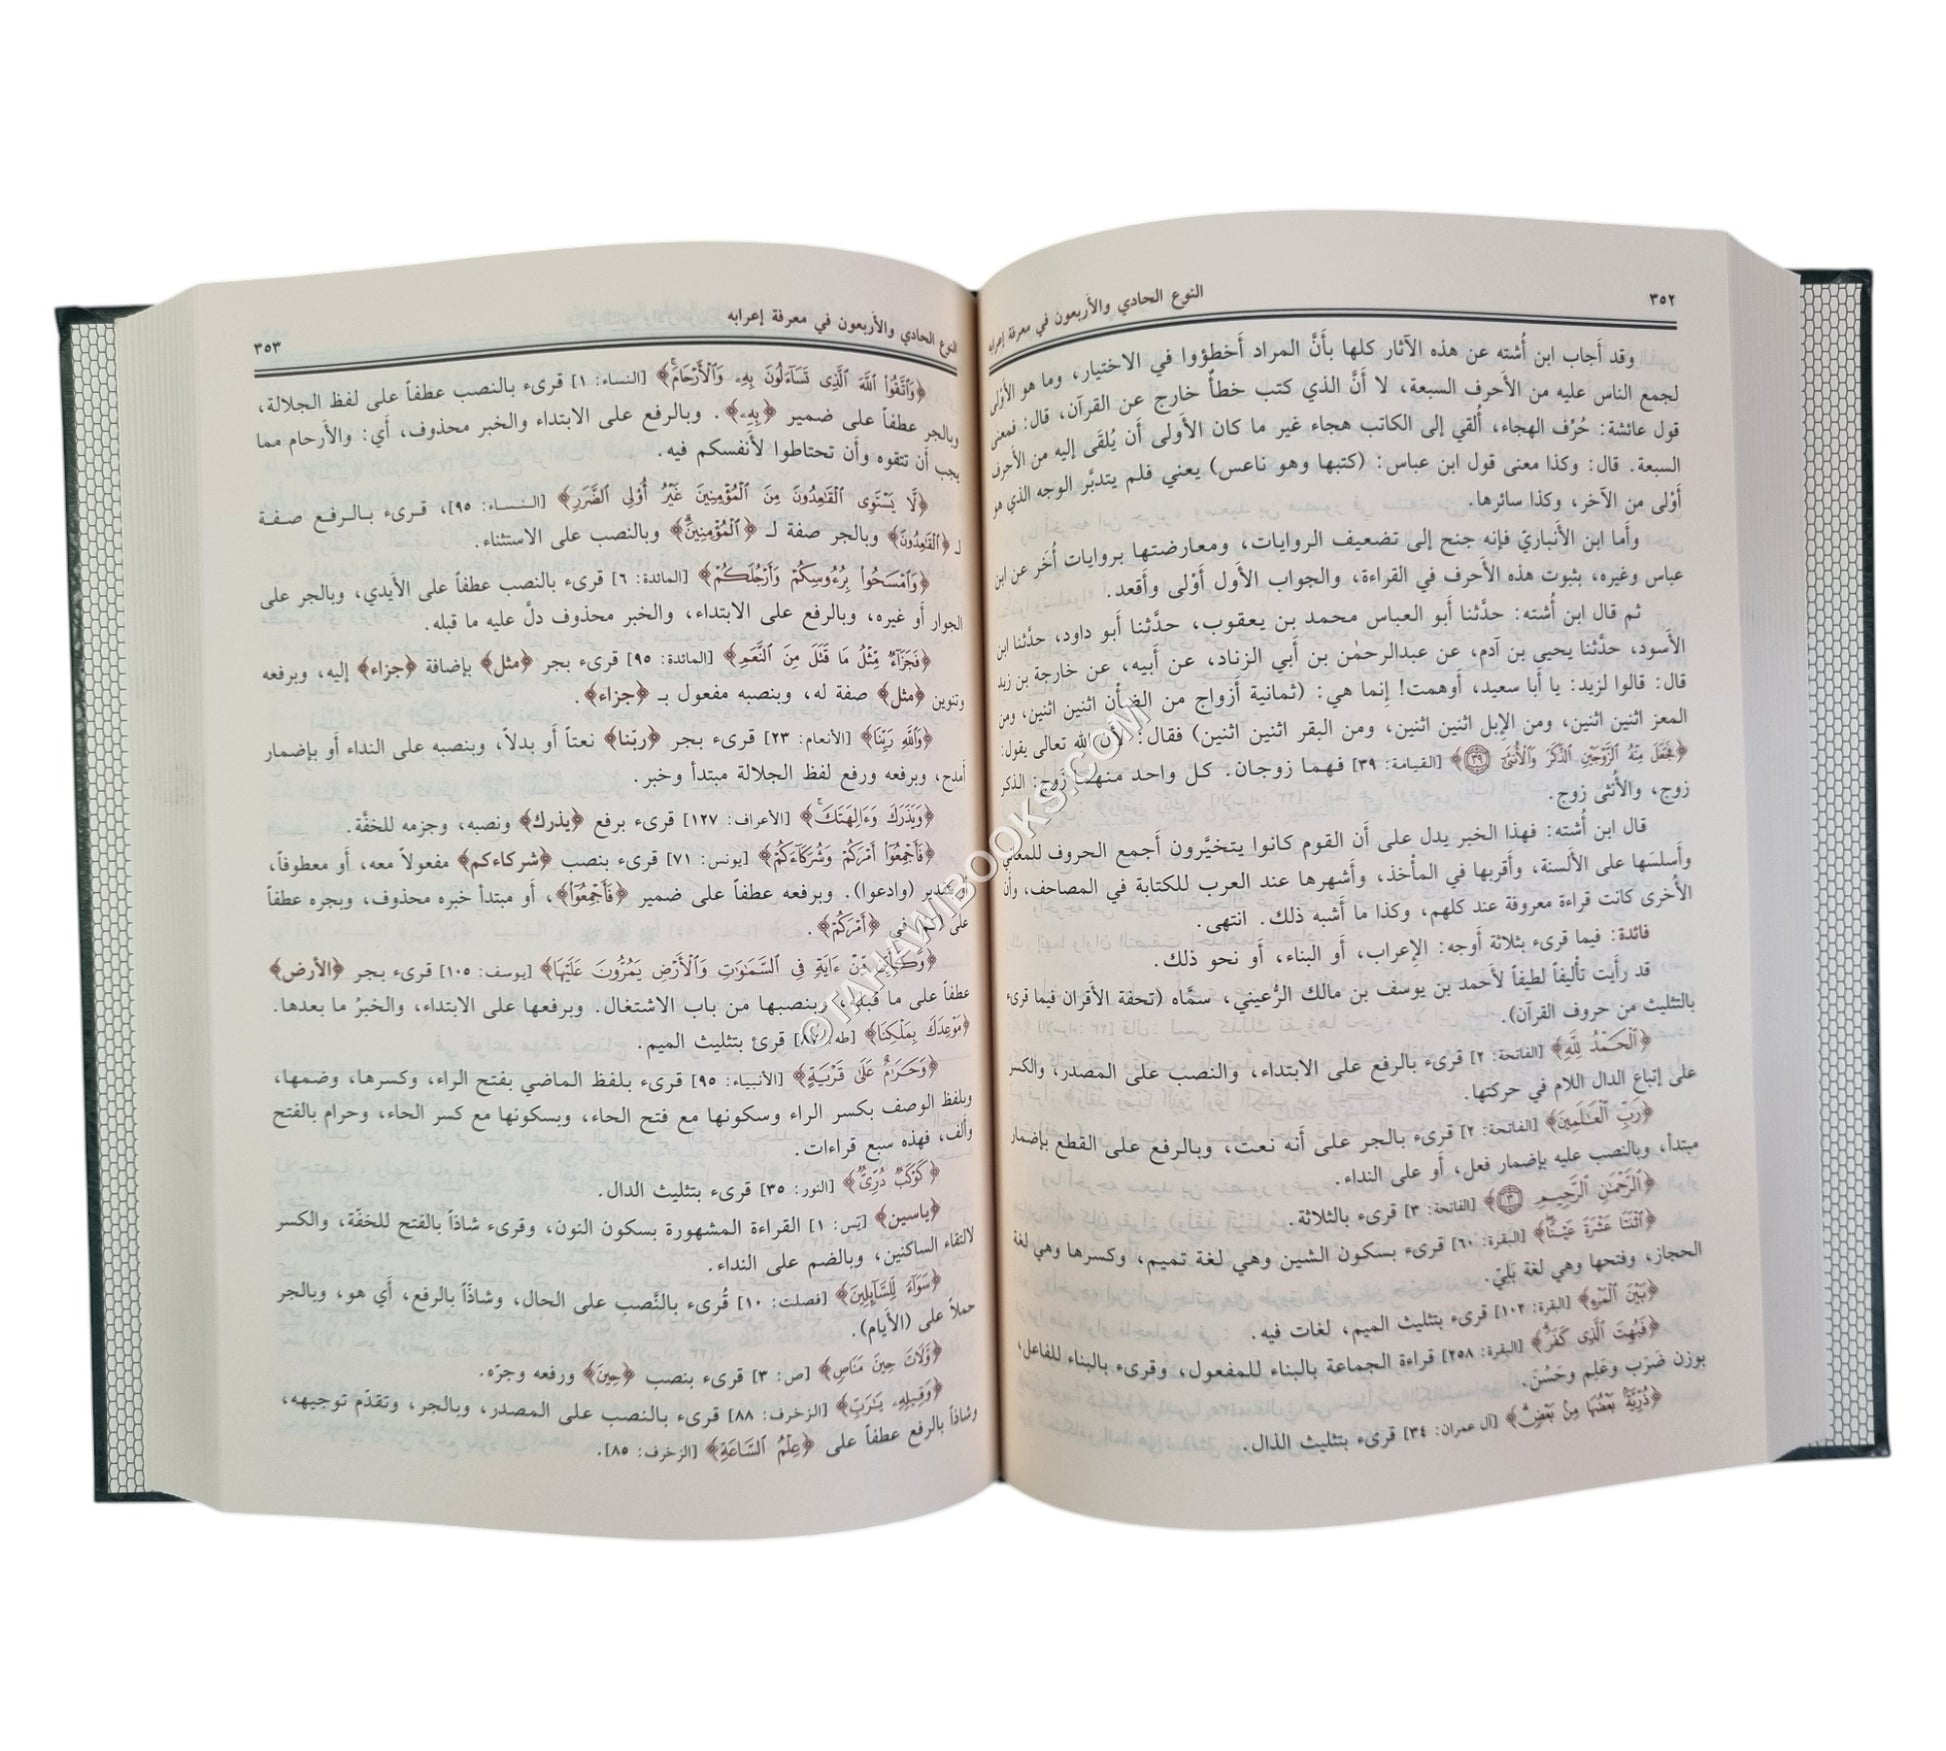 ٣٥٢
النوع الحادي والأربعون في معرفة إعرابه
وقد أَجاب ابن أُشته عن هذه الآثار كلها بأَنَّ المراد أَخطؤوا في الاختيار، وما هو الأَوْلى
لجمع الناس عليه من الأَحرف السبعة، لا أَنَّ الذي كتب خطأٌ خارج عن القرآن، قال: فمعنى
قول عائشة: حُرِّف الهجاء، أُلقي إلى الكاتب هجاء غير ما كان الأَولى أَن يُلقَى إليه من الأَحرف
السبعة. قال: وكذا معنى قول ابن عباس: (كتبها وهو ناعس) يعني فلم يتدبَّر الوجه الذي هو
أَوْلى من الآخر، وكذا سائرها.
وأَما ابن الأَنباريّ فإنه جنح إلى تضعيف الروايات، ومعارضتها بروايات أُخَر عن ابن
عباس وغيره، بثبوت هذه الأَحرف في القراءة، والجواب الأَول أَوْلى وأَقعد.
ثم قال ابن أُشته: حدَّثنا أَبو العباس محمد بن يعقوب، حدَّثنا أَبو داود، حدَّثنا ابن
الأَسود، حدَّثنا يحيى بن آدم، عن عبدالرحمٰن بن أَبي الزناد، عن أَبيه، عن خارجة بن زيد
قال: قالوا لزيد: يا أَبا سعيد، أَوهمت! إِنما هي: (ثمانية أَزواج من الضأْن اثنين اثنين، ومن
المعز اثنين اثنين، ومن الإِبل اثنين اثنين، ومن البقر اثنين اثنين) فقال: لأَن الله تعالى يقول:
﴿فَجَعَلَ مِنْهُ ٱلزَّوْجَيْنِ ٱلذَّكَرَ وَٱلْأُنثَىٰٓ ٣٩﴾ [القيامة: ٣٩] فهما زوجان. كل واحد منهما زوج: الذكر
زوج، والأُنثى زوج.
قال ابن أُشته: فهذا الخبر يدل على أَن القوم كانوا يتخيَّرون أَجمع الحروف للمعاني
وأَسلسَها على الأَلسنة، وأَقربها في المأْخذ، وأَشهرها عند العرب للكتابة في المصاحف، وأن
الأُخرى كانت قراءة معروفة عند كلهم، وكذا ما أَشبه ذلك. انتهى.
فائدة: فيما قرىء بثلاثة أَوجه: الإِعراب، أَو البناء، أَو نحو ذلك.
قد رأَيت تأْليفاً لطيفاً لأَحمد بن يوسف بن مالك الرُّعيني، سمَّاه (تحفة الأَقران فيما قرىء
بالتثليث من حروف القرآن).
﴿ٱلْحَمْدُ لِلَّهِ﴾ [الفاتحة: ٢] قرىء بالرفع على الابتداء، والنصب على المصدر، والكسر
على إتباع الدال اللام في حركتها.
﴿رَبِّ ٱلْعَٰلَمِينَ﴾ [الفاتحة: ٢] قرىء بالجر على أَنه نعت، وبالرفع على القطع بإضمار
مبتدأ، وبالنصب عليه بإضمار فعل، أَو على النداء.
﴿ٱلرَّحْمَٰنِ ٱلرَّحِيمِ ٣﴾ [الفاتحة: ٣] قرىء بالثلاثة.
﴿ٱثْنَتَا عَشْرَةَ عَيْنًا﴾ [البقرة: ٦٠] قرىء بسكون الشين وهي لغة تميم، وكسرها وهي لغة
الحجاز، وفتحها وهي لغة بَلِيّ.
﴿بَيْنَ ٱلْمَرْءِ﴾ [البقرة: ١٠٢] قرىء بتثليث الميم، لغات فيه.
﴿فَبُهِتَ ٱلَّذِى كَفَرَ﴾ [البقرة: ٢٥٨] قراءة الجماعة بالبناء للمفعول، وقرىء بالبناء للفاعل،
بوزن ضَرَب وعَلِم وحَسُنَ.
﴿ذُرِّيَّةًۢ بَعْضُهَا مِنۢ بَعْضٍ﴾ [آل عمران: ٣٤] قرىء بتثليث الذال.
النوع الحادي والأربعون في معرفة إعرابه
٣٥٣
﴿وَٱتَّقُوا۟ ٱللَّهَ ٱلَّذِى تَسَآءَلُونَ بِهِۦ وَٱلْأَرْحَامَ﴾ [النساء: ١] قرىء بالنصب عطفاً على لفظ الجلالة،
وبالجر عطفاً على ضمير ﴿بِهِۦ﴾. وبالرفع على الابتداء والخبر محذوف، أَي: والأَرحام مما
يجب أَن تتقوه وأَن تحتاطوا لأَنفسكم فيه.
﴿لَّا يَسْتَوِى ٱلْقَٰعِدُونَ مِنَ ٱلْمُؤْمِنِينَ غَيْرُ أُو۟لِى ٱلضَّرَرِ﴾ [النساء: ٩٥]، قرىء بالرفع صفة
لـ ﴿ٱلْقَٰعِدُونَ﴾ وبالجر صفة لـ ﴿ٱلْمُؤْمِنِينَ﴾ وبالنصب على الاستثناء.
﴿وَٱمْسَحُوا۟ بِرُءُوسِكُمْ وَأَرْجُلَكُمْ﴾ [المائدة: ٦] قرىء بالنصب عطفاً على الأَيدي، وبالجر على
الجوار أَو غيره، وبالرفع على الابتداء، والخبر محذوف دلَّ عليه ما قبله.
﴿فَجَزَآءٌ مِّثْلُ مَا قَتَلَ مِنَ ٱلنَّعَمِ﴾ [المائدة: ٩٥] قرىء بجر ﴿مثل﴾ بإضافة ﴿جزاء﴾ إليه، وبرفعه
وتنوين ﴿مثل﴾ صفة له، وبنصبه مفعول بـ ﴿جزاء﴾.
﴿وَٱللَّهِ رَبِّنَا﴾ [الأنعام: ٢٣] قرىء بجر ﴿ربّنا﴾ نعتاً أَو بدلاً، وبنصبه على النداء أَو بإضمار
أَمدح، وبرفعه ورفع لفظ الجلالة مبتدأ وخبر.
﴿وَيَذَرَكَ وَءَالِهَتَكَ﴾ [الأعراف: ١٢٧] قرىء برفع ﴿يذرك﴾ ونصبه، وجزمه للخفَّة.
﴿فَأَجْمِعُوٓا۟ أَمْرَكُمْ وَشُرَكَآءَكُمْ﴾ [يونس: ٧١] قرىء بنصب ﴿شركاءكم﴾ مفعولاً معه، أو معطوفاً،
بتقدير (وادعوا). وبرفعه عطفاً على ضمير ﴿فَأَجْمِعُوٓا۟﴾، أَو مبتدأ خبره محذوف، وبجره عطفاً
على (كم) في ﴿أَمْرَكُمْ﴾.
﴿وَكَأَيِّن مِّنْ ءَايَةٍ فِى ٱلسَّمَٰوَٰتِ وَٱلْأَرْضِ يَمُرُّونَ عَلَيْهَا﴾ [يوسف: ١٠٥] قرىء بجر ﴿الأرض﴾
عطفاً على ما قبله، وبنصبها من باب الاشتغال. وبرفعها على الابتداء، والخبرُ ما بعدها.
﴿مَوْعِدَكَ بِمَلْكِنَا﴾ [طه: ٨٧] قرئ بتثليث الميم.
﴿وَحَرَٰمٌ عَلَىٰ قَرْيَةٍ﴾ [الأنبياء: ٩٥] قرىء بلفظ الماضي بفتح الراء، وكسرها، وضمها،
وبلفظ الوصف بكسر الراء وسكونها مع فتح الحاء، وبسكونها مع كسر الحاء، وحرام بالفتح
وأَلف، فهذه سبع قراءات.
﴿كَوْكَبٌ دُرِّىٌّ﴾ [النور: ٣٥] قرىء بتثليث الدال.
﴿ياسين﴾ [يَس: ١] القراءة المشهورة بسكون النون، وقرىء شاذاً بالفتح للخفَّة، والكسر
لالتقاء الساكنين، وبالضم على النداء.
﴿سَوَآءً لِّلسَّآئِلِينَ﴾ [فصلت: ١٠] قُرىء بالنَّصب على الحال، وشاذّاً بالرفع، أَي هو، وبالجر
حملاً على (الأَيام).
﴿وَّلَاتَ حِينَ مَنَاصٍ﴾ [ص: ٣] قرىء بنصب ﴿حِينَ﴾ ورفعه وجرّه.
﴿وَقِيلِهِۦ يَٰرَبِّ﴾ [الزخرف: ٨٨] قرىء بالنصب على المصدر، وبالجر، وتقدّم توجيهه،
وشاذاً بالرفع عطفاً على ﴿عِلْمُ ٱلسَّاعَةِ﴾ [الزخرف: ٨٥].
©TAHAWIBOOKS.COM